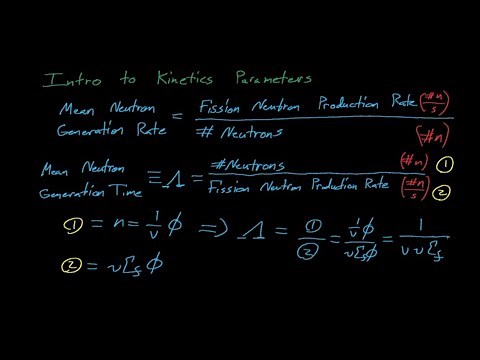 Intro to Kinetics Parameters
Mean Neutron Generation Rate = Fission Neutron Production Rate (#n/s) / # Neutrons (#n)
Mean Neutron Generation Time ≡ Λ = #Neutrons (#n) ① / Fission Neutron Production Rate (#n/s) ②
① = n = 1/v ϕ => Λ = ①/② = 1/v ϕ / νΣf ϕ = 1 / vνΣf
② = νΣf ϕ